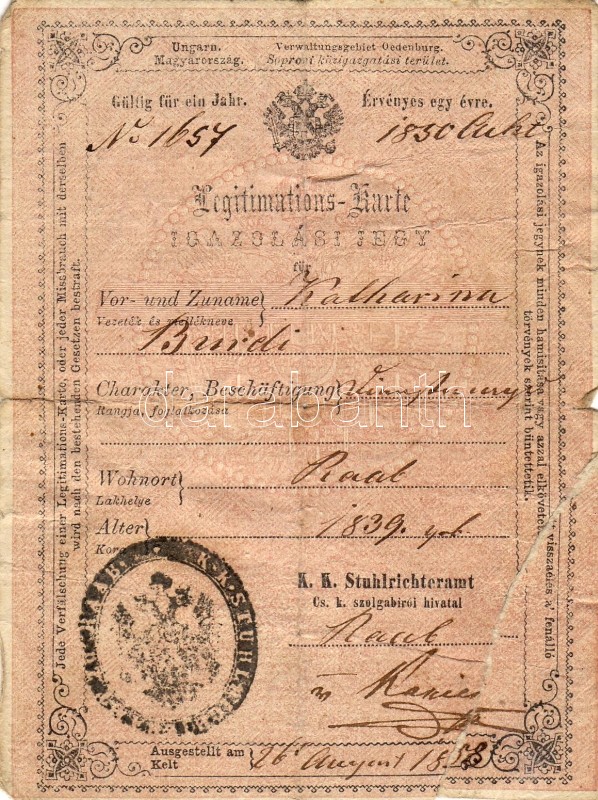 Ungarn.
Magyarország.
Verwaltungsgebiet Oedenburg.
Soproni közigazgatási terület.
Gültig für ein Jahr.
Érvényes egy évre.
No 1657
Legitimations-Karte
IGAZOLÁSI JEGY
für
Vor- und Zuname} Katharina
Vezeték és mellékneve
Burdi
Charakter, Beschäftigung}
Rangja, foglalkozása
Wohnort} Raab
Lakhelye
Alter} 1839. geb
Kora
K. K. Stuhlrichteramt
Cs. k. szolgabirói hivatal
Raab
Ausgestellt am
Kelt
26t August 1858
Jede Verfälschung einer Legitimations-Karte, oder jeder Missbrauch mit derselben
wird nach den bestehenden Gesetzen bestraft.
Az igazolási jegynek minden hamisitása vagy azzal elkövetett visszaélés a' fenálló
törvények szerint büntettetik.
K.K. STUHL RAAB
darabanth